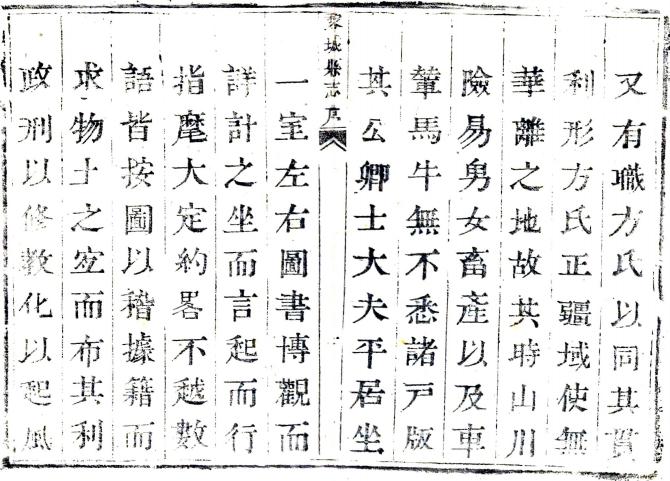 又有職方氏以同其貫
利形方氏正疆域使無
華離之地故其時山川
險易男女畜產以及車
輦馬牛無不悉諸戸版
其公卿士大夫平居坐
黎城縣志序
一室左右圖書博觀而
詳計之坐而言起而行
指麾大定約畧不越數
語皆按圖以稽據籍而
求物土之宜而布其利
政刑以修教化以起風